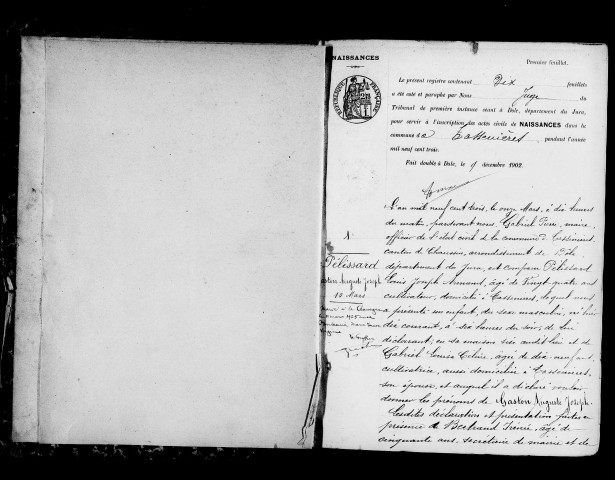 NAISSANCES
Premier feuillet.
Le présent registre contenant Dix feuillets
a été coté et paraphé par Nous Juge du
Tribunal de première instance séant à Dole, département du Jura,
pour servir à l'inscription des actes civils de NAISSANCES dans la
commune de Tassenières, pendant l'année
mil neuf cent trois.
Fait double à Dole, le décembre 1902.
RÉPUBLIQUE FRANÇAISE
L'an mil neuf cent trois, le onze Mars, à dix heures
du matin, pardevant nous, Gabriel maire,
officier de l'état civil de la commune de Tassenières,
canton de Chaussin, arrondissement de Dôle,
département du Jura, est comparu Pélissard
Louis Joseph Armand, âgé de Vingt quatre ans
cultivateur, domicilié à Tassenières, lequel nous
a présenté un enfant, du sexe masculin, né hier
dix courant, à six heures du soir, de lui
déclarant, en sa maison sise audit lieu et de
Gabriel Louise Céline, âgée de dix-neuf ans,
cultivatrice, aussi domiciliée à Tassenières,
son épouse, et auquel il a déclaré vouloir
donner les prénoms de Gaston Auguste Joseph.
Lesdites déclaration et présentation faites en
présence de Bertrand Irénée, âgé de
cinquante ans, secrétaire de mairie et de
N
Pélissard
Gaston Auguste Joseph
10 Mars